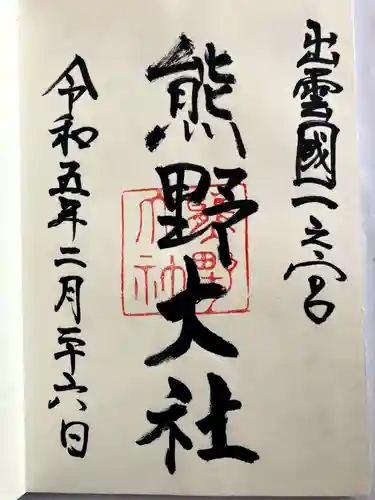 出雲國一之宮
熊野大社
令和五年二月二十六日
熊野大社